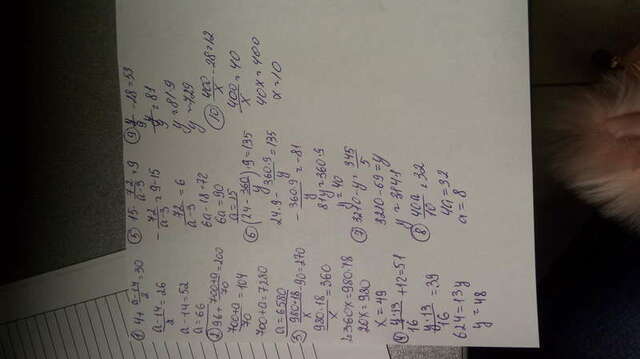 1) 4+ (a-14)/2 = 30
(a-14)/2 = 26
a-14=52
a=66
2) 96+ (700+a)/70 = 200
(700+a)/70 = 104
700+a=7280
a=6580
3) (980·18)/x -90=270
(980·18)/x = 360
360x=980·18
20x=980
x=49
4) (y·13)/16 +12=51
(y·13)/16 = 39
624=13y
y=48
5) 15- 72/(a-3) = 9
- 72/(a-3) = 9-15
72/(a-3) = 6
6a-18=72
6a=90
a=15
6) (24- 360/y)·9=135
24·9- (360·9)/y = 135
- (360·9)/y = -81
81y=360·9
y=40
7) 3210-y= 345/5
3210-69=y
y=3141
8) 40a/10 = 32
4a=32
a=8
9) y/9 -28=53
y/9 = 81
y=81·9
y=729
10) 400/x -28=12
400/x = 40
40x=400
x=10